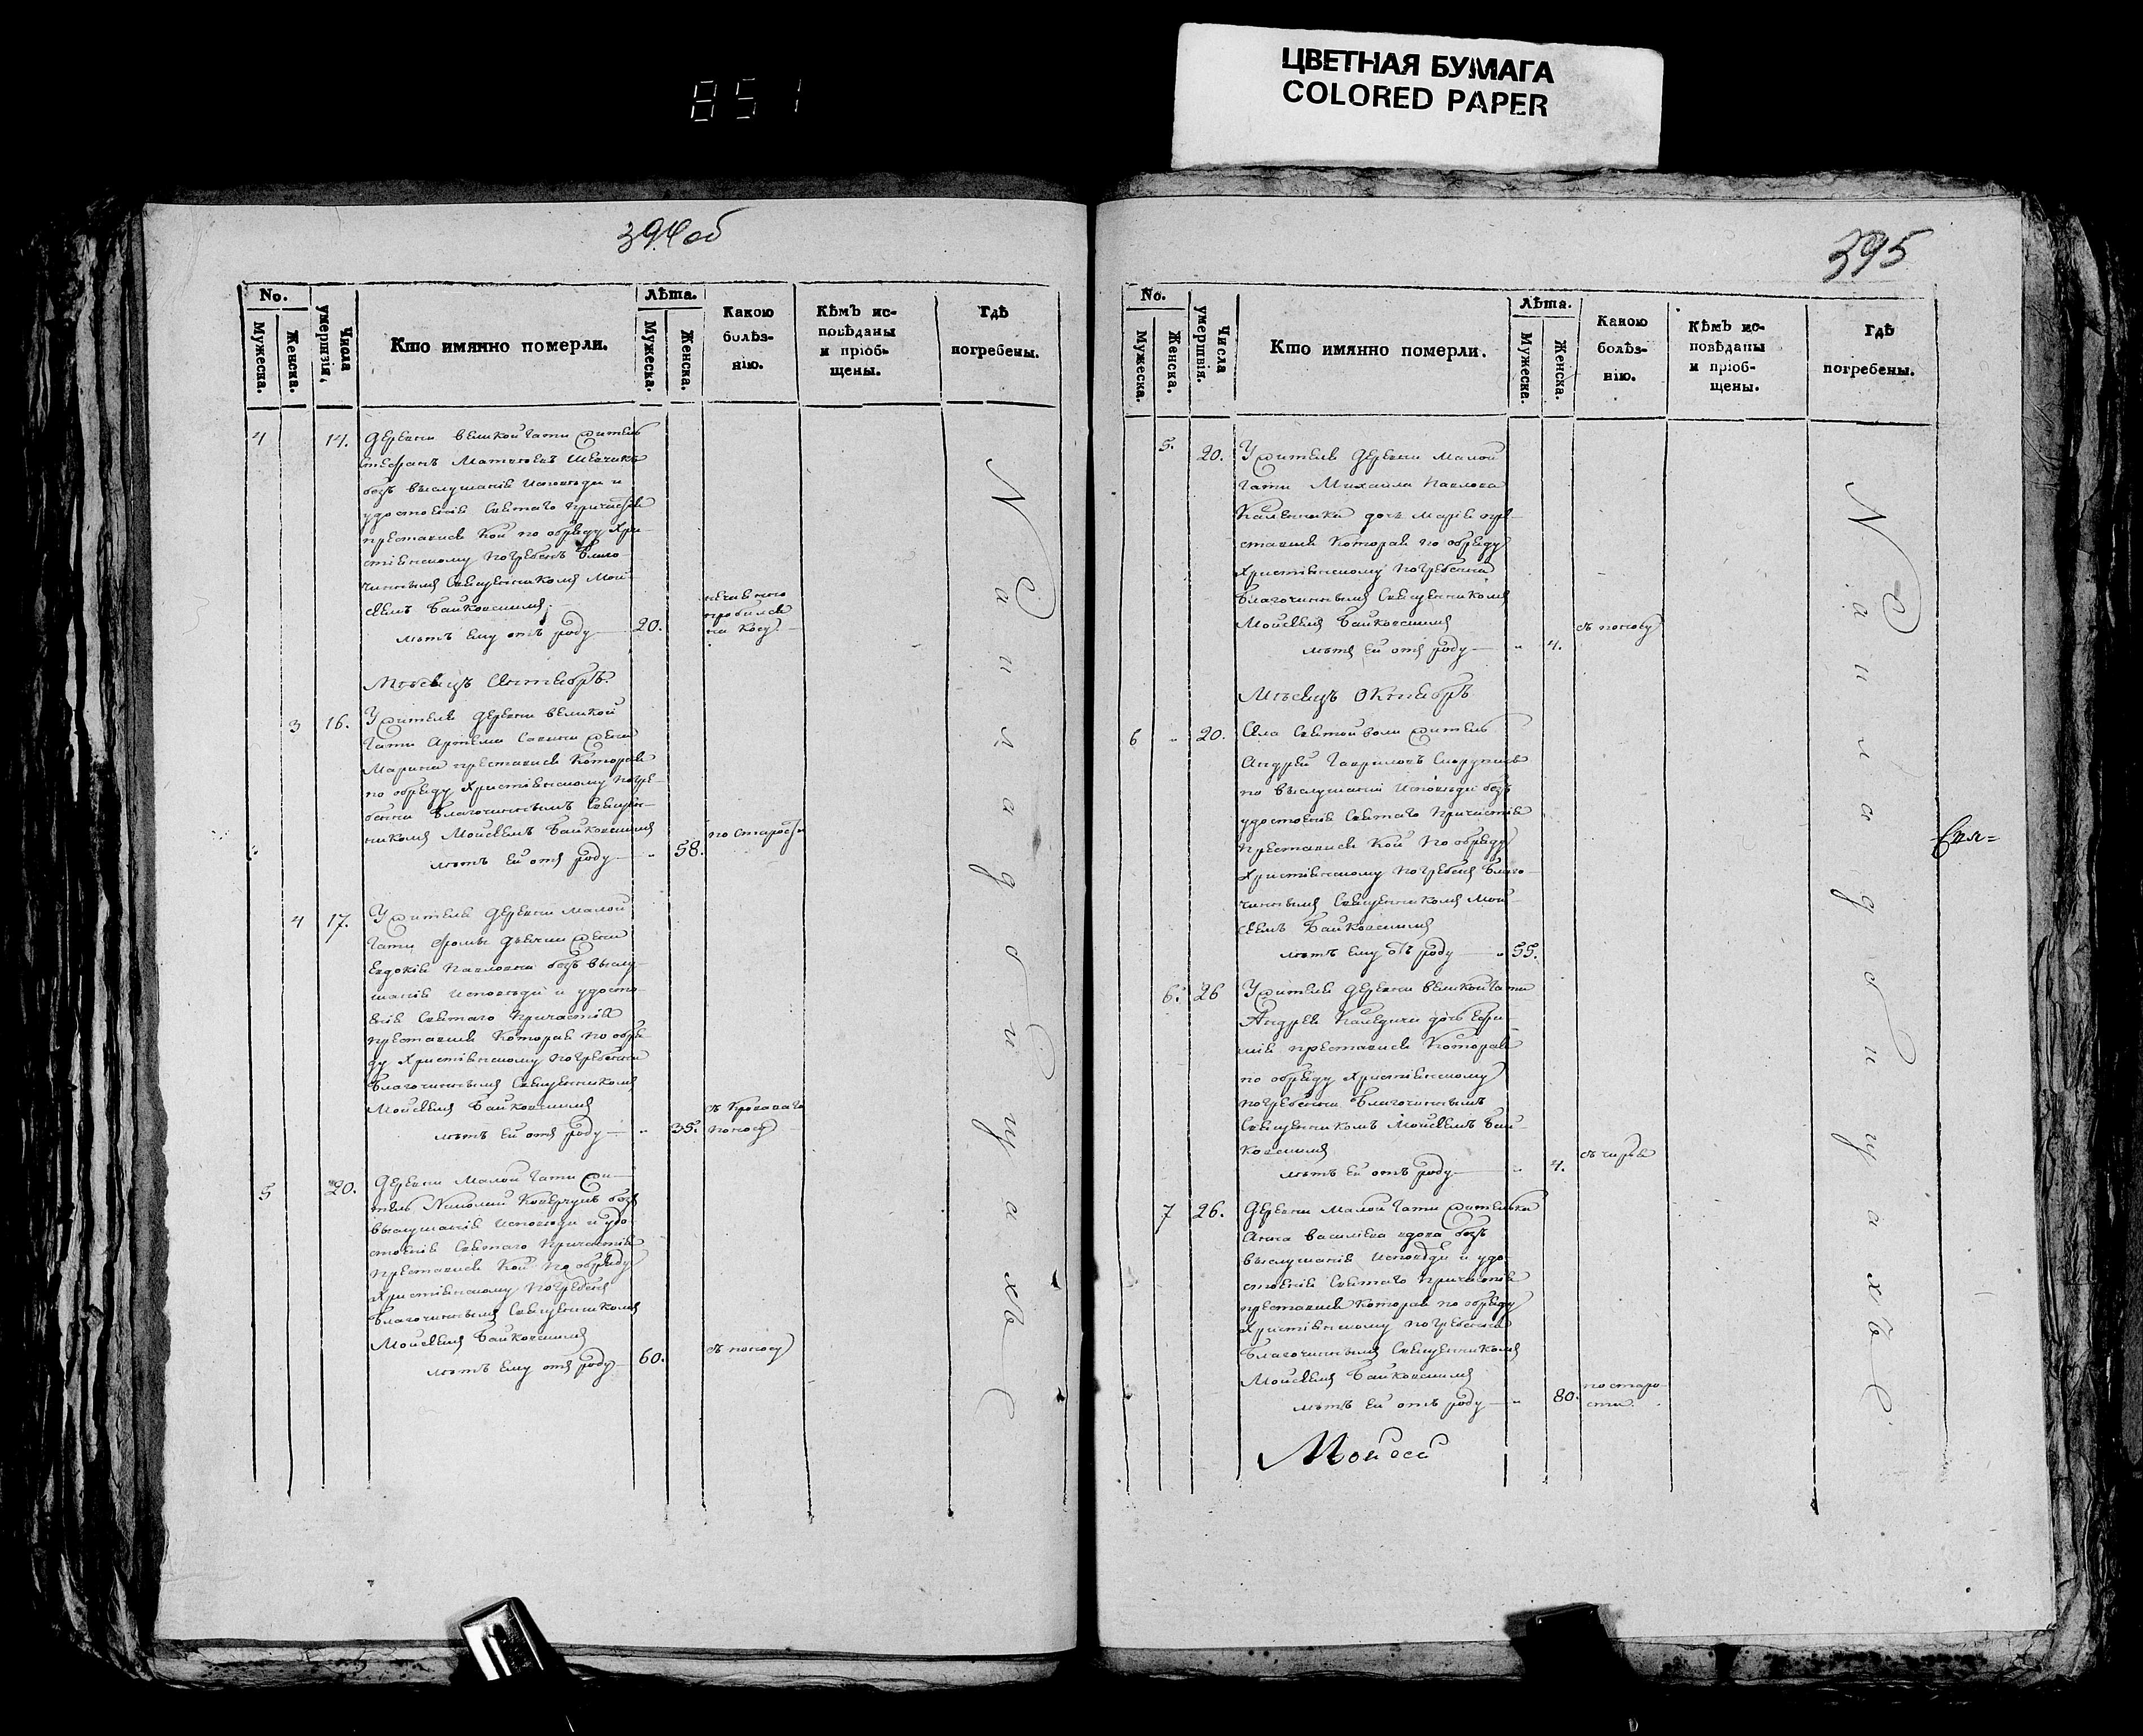 851
ЦВЕТНАЯ БУМАГА
COLORED PAPER
394 об
No.
Мужеска.
Женска.
Числа умершвія,
Кто имянно померли.
Лѣта.
Мужеска.
Женска.
Какою
болѣз-
нію.
Кѣмъ ис-
повѣданы
и пріоб-
щены.
Гдѣ
погребены.
4 14. Деревни Великой Гати житель
Стефанъ Матвеевъ Шевчикъ
безъ выслушанія Исповѣди и
удостоенія Святаго Причастія
преставися кой по обряду Хри-
стіянскому погребенъ Благо
чиннымъ Священникомъ Мои
сеемъ Байковскимъ
лѣтъ Ему отъ роду 20.
нечаянно
пробился
на косу
Мѣсяцъ Сентябрь
3 16. У жителя деревни Великой
Гати Артема Савки жена
Марина преставися которая
по обряду Христіянскому погре-
бенна Благочиннымъ Священ-
никомъ Моисеемъ Байковскимъ
лѣтъ Ей отъ роду " 58.
по старости
4 17. У жителя деревни Малой
Гати Фомы жены
Евдокія Павловна безъ выслу-
шанія Исповѣди и удосто-
енія Святаго Причастія
преставися которая по обря-
ду Христіянскому погребенна
Благочиннымъ Священникомъ
Моисеемъ Байковскимъ
лѣтъ Ей отъ роду " 35.
съ кроваваго
поносу
5 20. Деревни Малой Гати жи-
тель Николай безъ
выслушанія Исповѣди и удо-
стоенія Святаго Причастія
преставися кой по обряду
Христіянскому погребенъ
Благочиннымъ Священникомъ
Моисеемъ Байковскимъ
лѣтъ Ему отъ роду 60.
съ поносу
На кладбищахъ
395
No.
Мужеска.
Женска.
Числа умершвія.
Кто имянно померли.
Лѣта.
Мужеска.
Женска.
Какою
болѣз-
нію.
Кѣмъ ис-
повѣданы
и пріоб-
щены.
Гдѣ
погребены.
5. 20. У жителя деревни Малой
Гати Михайла Павлова
Каленика дочь Марія пре-
ставися которая по обряду
Христіянскому погребенна
Благочиннымъ Священникомъ
Моисеемъ Байковскимъ
лѣтъ Ей отъ роду " 4.
съ поносу
Мѣсяцъ Октябрь
6 " 20. Села Святой Воли житель
Андрей Гавриловъ
по выслушаніи Исповѣди безъ
удостоенія Святаго Причастія
преставися кой по обряду
Христіянскому погребенъ Благо-
чиннымъ Священникомъ Мои-
сеемъ Байковскимъ
лѣтъ Ему отъ роду 55.
6. 26 У жителя деревни Великой Гати
Андрея дочь Ефи-
мія преставися которая
по обряду Христіянскому
погребенна Благочиннымъ
Священникомъ Моисеемъ Бай-
ковскимъ
лѣтъ Ей отъ роду " 4.
съ чирья
7 26. Деревни Малой Гати жителька
Анна Василіева вдова безъ
выслушанія Исповѣди и удо-
стоенія Святаго Причастія
преставися которая по обряду
Христіянскому погребенна
Благочиннымъ Священникомъ
Моисеемъ Байковскимъ
лѣтъ Ей отъ роду " 80.
по старо-
сти.
Моисей
На кладбищахъ